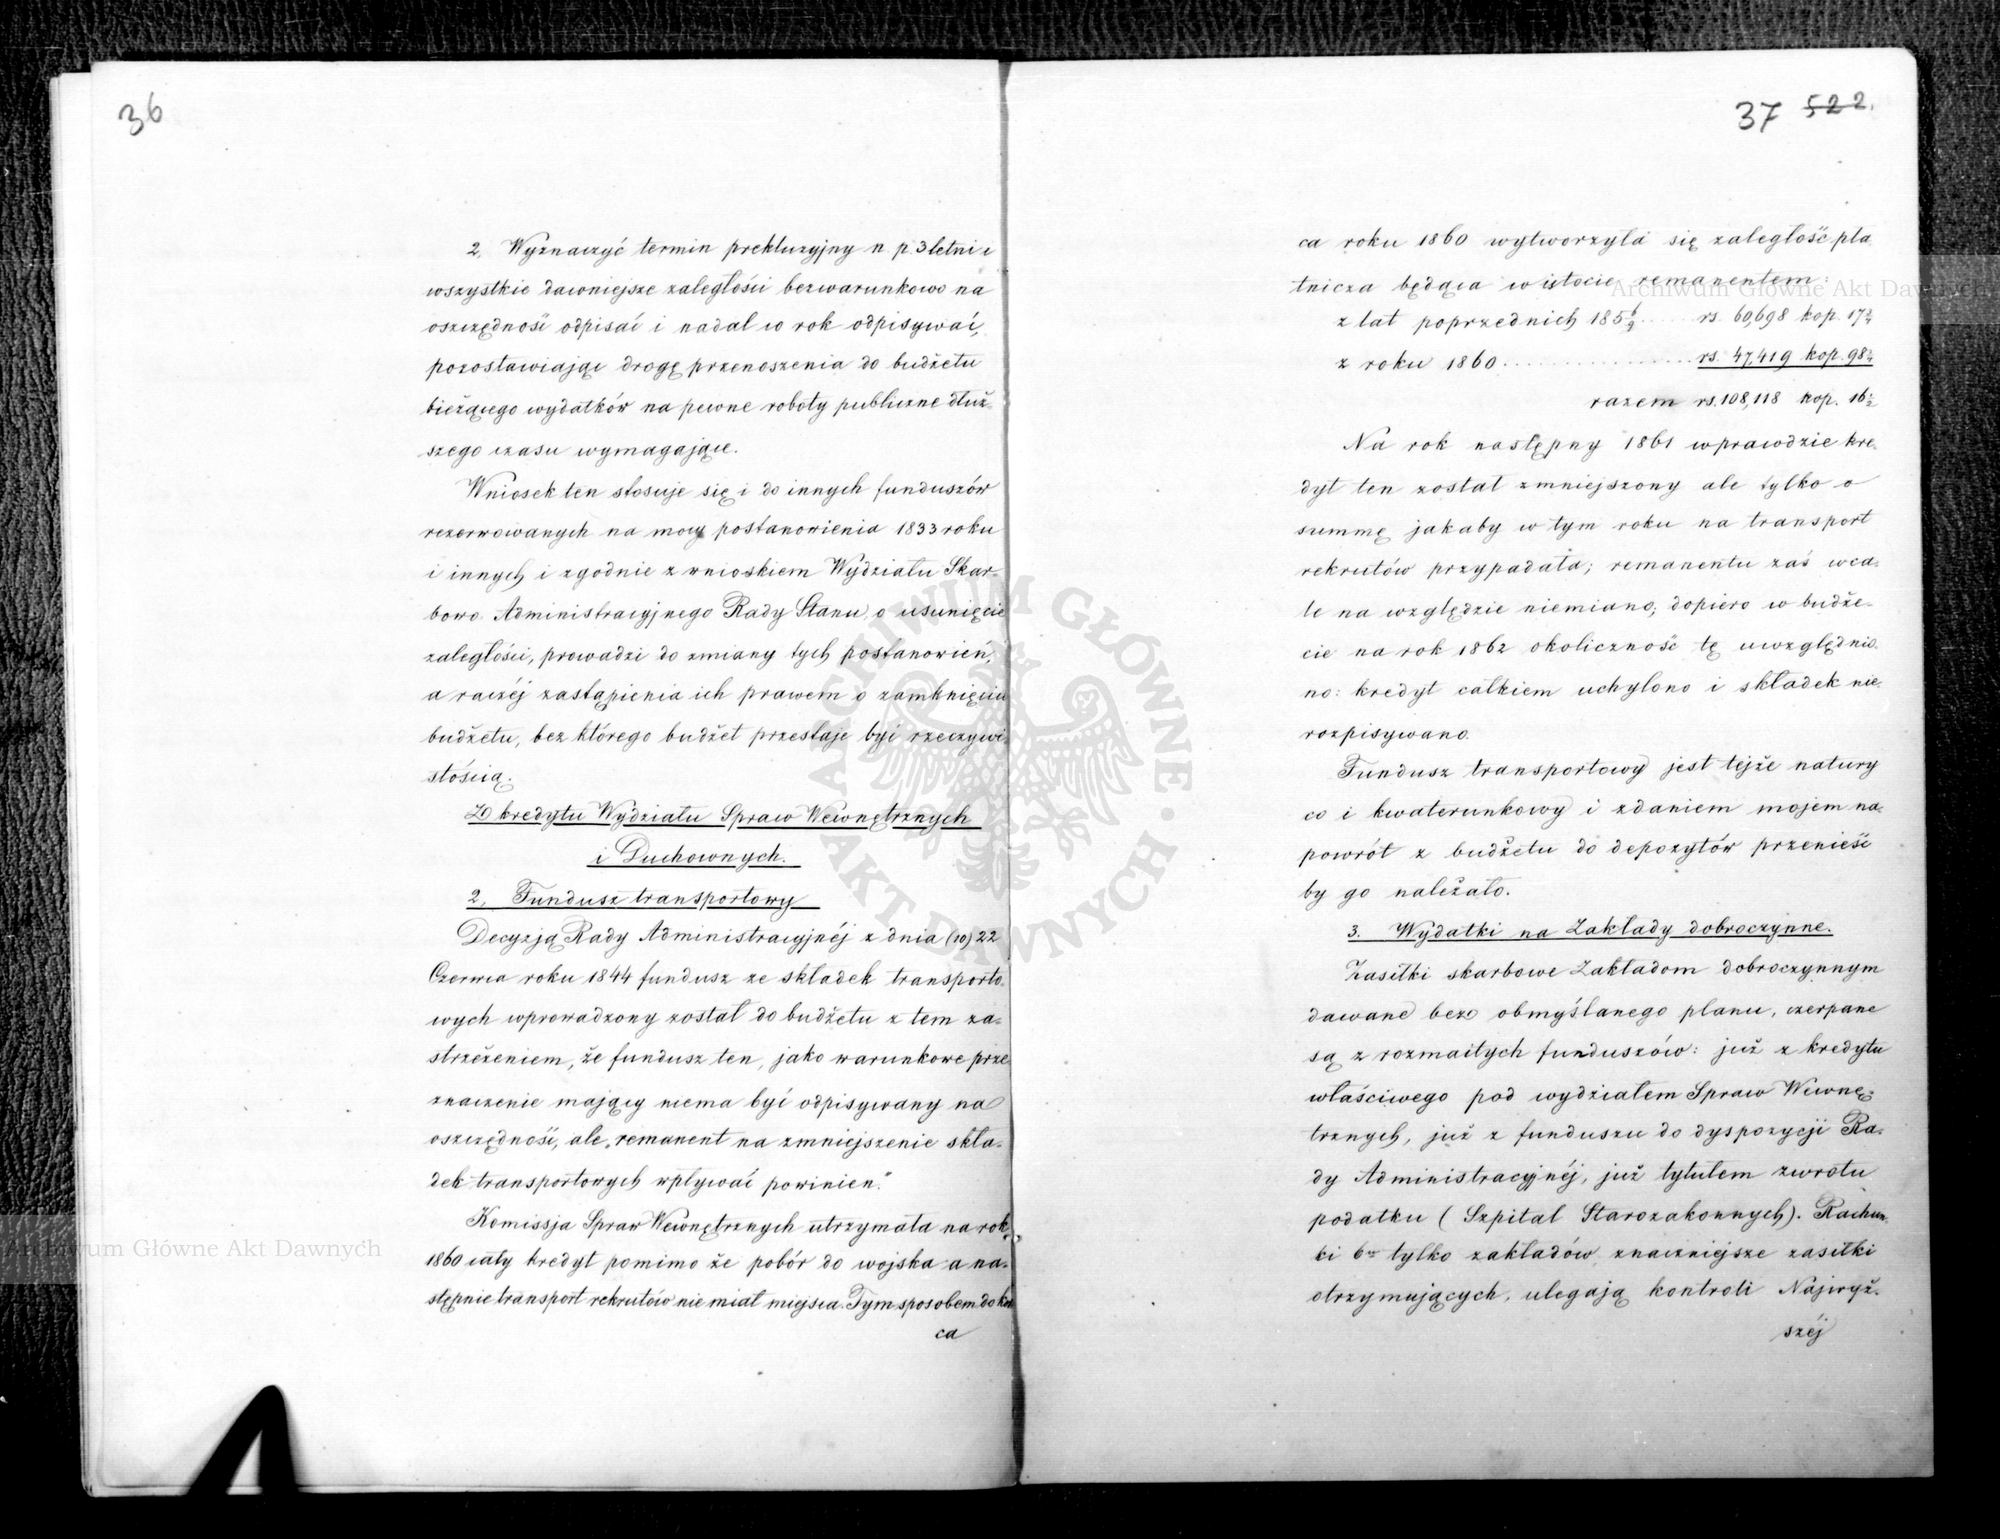 36
2. Wyznaczyć termin prekluzyjny n p. 3 letni i
wszystkie dawniejsze zaległości bezwarunkowo na
oszczędność odpisać i nadal co rok odpisywać,
pozostawiając drogę przenoszenia do budżetu
bieżącego wydatków na pewne roboty publiczne dłuż-
szego czasu wymagające.
Wniosek ten stosuje się i do innych funduszów
rezerwowanych na mocy postanowienia 1833 roku
i innych i zgodnie z wnioskiem Wydziału Skar-
bowo Administracyjnego Rady Stanu, o usunięcie
zaległości, prowadzi do zmiany tych postanowień,
a raczéj zastąpienia ich prawem o zamknięciu
budżetu, bez którego budżet przestaje być rzeczywi-
stością.
Z kredytu Wydziału Spraw Wewnętrznych
i Duchownych.
2, Fundusz transportowy
Decyzją Rady Administracyjnéj z dnia (10) 22
Czerwca roku 1844 fundusz ze składek transporto-
wych wprowadzony został do budżetu z tem za-
strzeżeniem, że fundusz ten, jako warunkowe prze
znaczenie mający niema być odpisywany na
oszczędność, ale „remanent na zmniejszenie skła-
dek transportowych wpływać powinien."
Komissja Spraw Wewnętrznych utrzymała na rok
1860 cały kredyt pomimo że pobór do wojska a na-
stępnie transport rekrutów nie miał miejsca. Tym sposobem do koń
ca
37 522.
ca roku 1860 wytworzyła się zaległość pła
tnicza będąca w istocie remanentem:
z lat poprzednich 185 8/9 ..... rs. 60,698 kop. 17 3/4
z roku 1860 ................ rs. 47,419 kop. 98 3/4
razem rs. 108,118 kop. 16 1/2
Na rok następny 1861 wprawdzie kre-
dyt ten został zmniejszony ale tylko o
summę jakaby w tym roku na transport
rekrutów przypadała; remanentu zaś wca-
le na względzie niemiano; dopiero w budże-
cie na rok 1862 okoliczność tę uwzględnio
no: kredyt całkiem uchylono i składek nie
rozpisywano.
Fundusz transportowy jest tejże natury
co i kwaterunkowy i zdaniem mojem na-
powrót z budżetu do depozytów przenieść
by go należało.
3. Wydatki na Zakłady dobroczynne.
Zasiłki skarbowe Zakładom dobroczynnym
dawane bez obmyślanego planu, czerpane
są z rozmaitych funduszów: już z kredytu
właściwego pod wydziałem Spraw Wewnę-
trznych, już z funduszu do dyspozycji Ra-
dy Administracyjnéj, już tytułem zwrotu
podatku (Szpital Starozakonnych). Rachun-
ki 6ciu tylko zakładów znaczniejsze zasiłki
otrzymujących, ulegają kontroli Najwyż-
széj
Archiwum Główne Akt Dawnych
Archiwum Główne Akt Dawnych
ARCHIWUM GŁÓWNE · AKT DAWNYCH ·